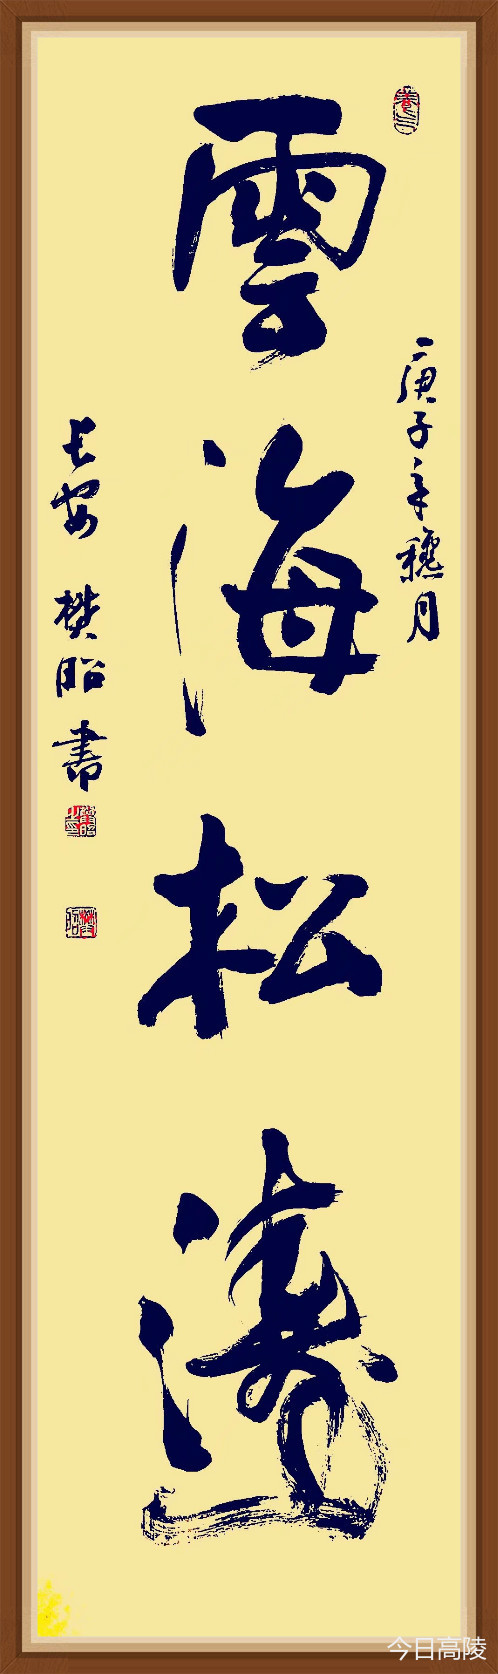 庚子年穐月
雲海松濤
長安 樊昭書
今日高陵